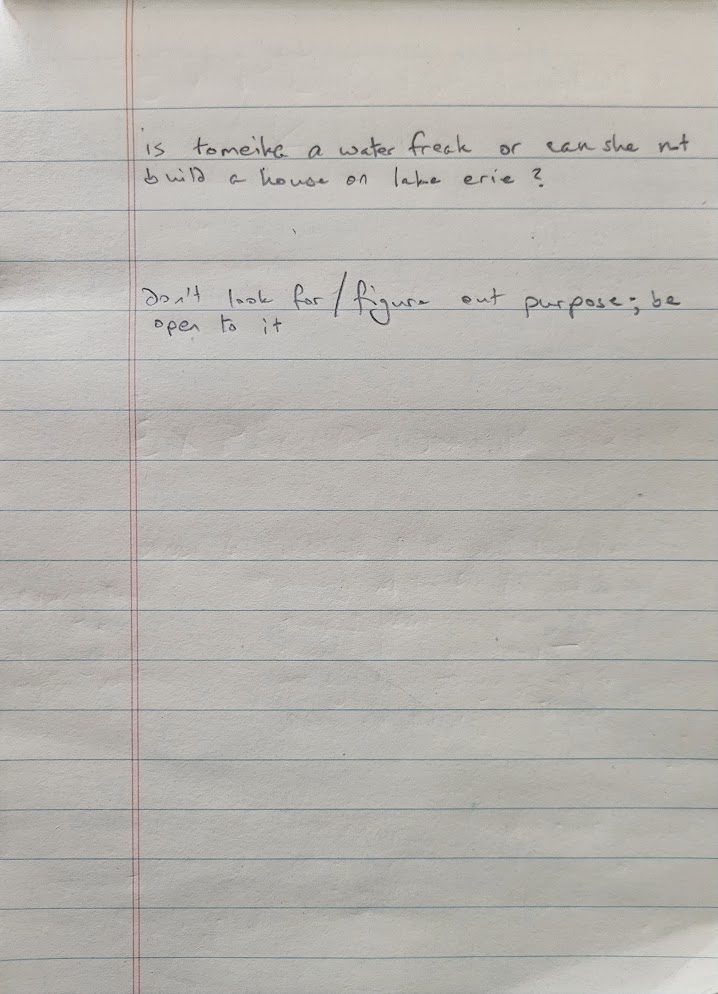 is tomeika a water freak or can she not
build a house on lake erie?
don't look for/figure out purpose; be
open to it